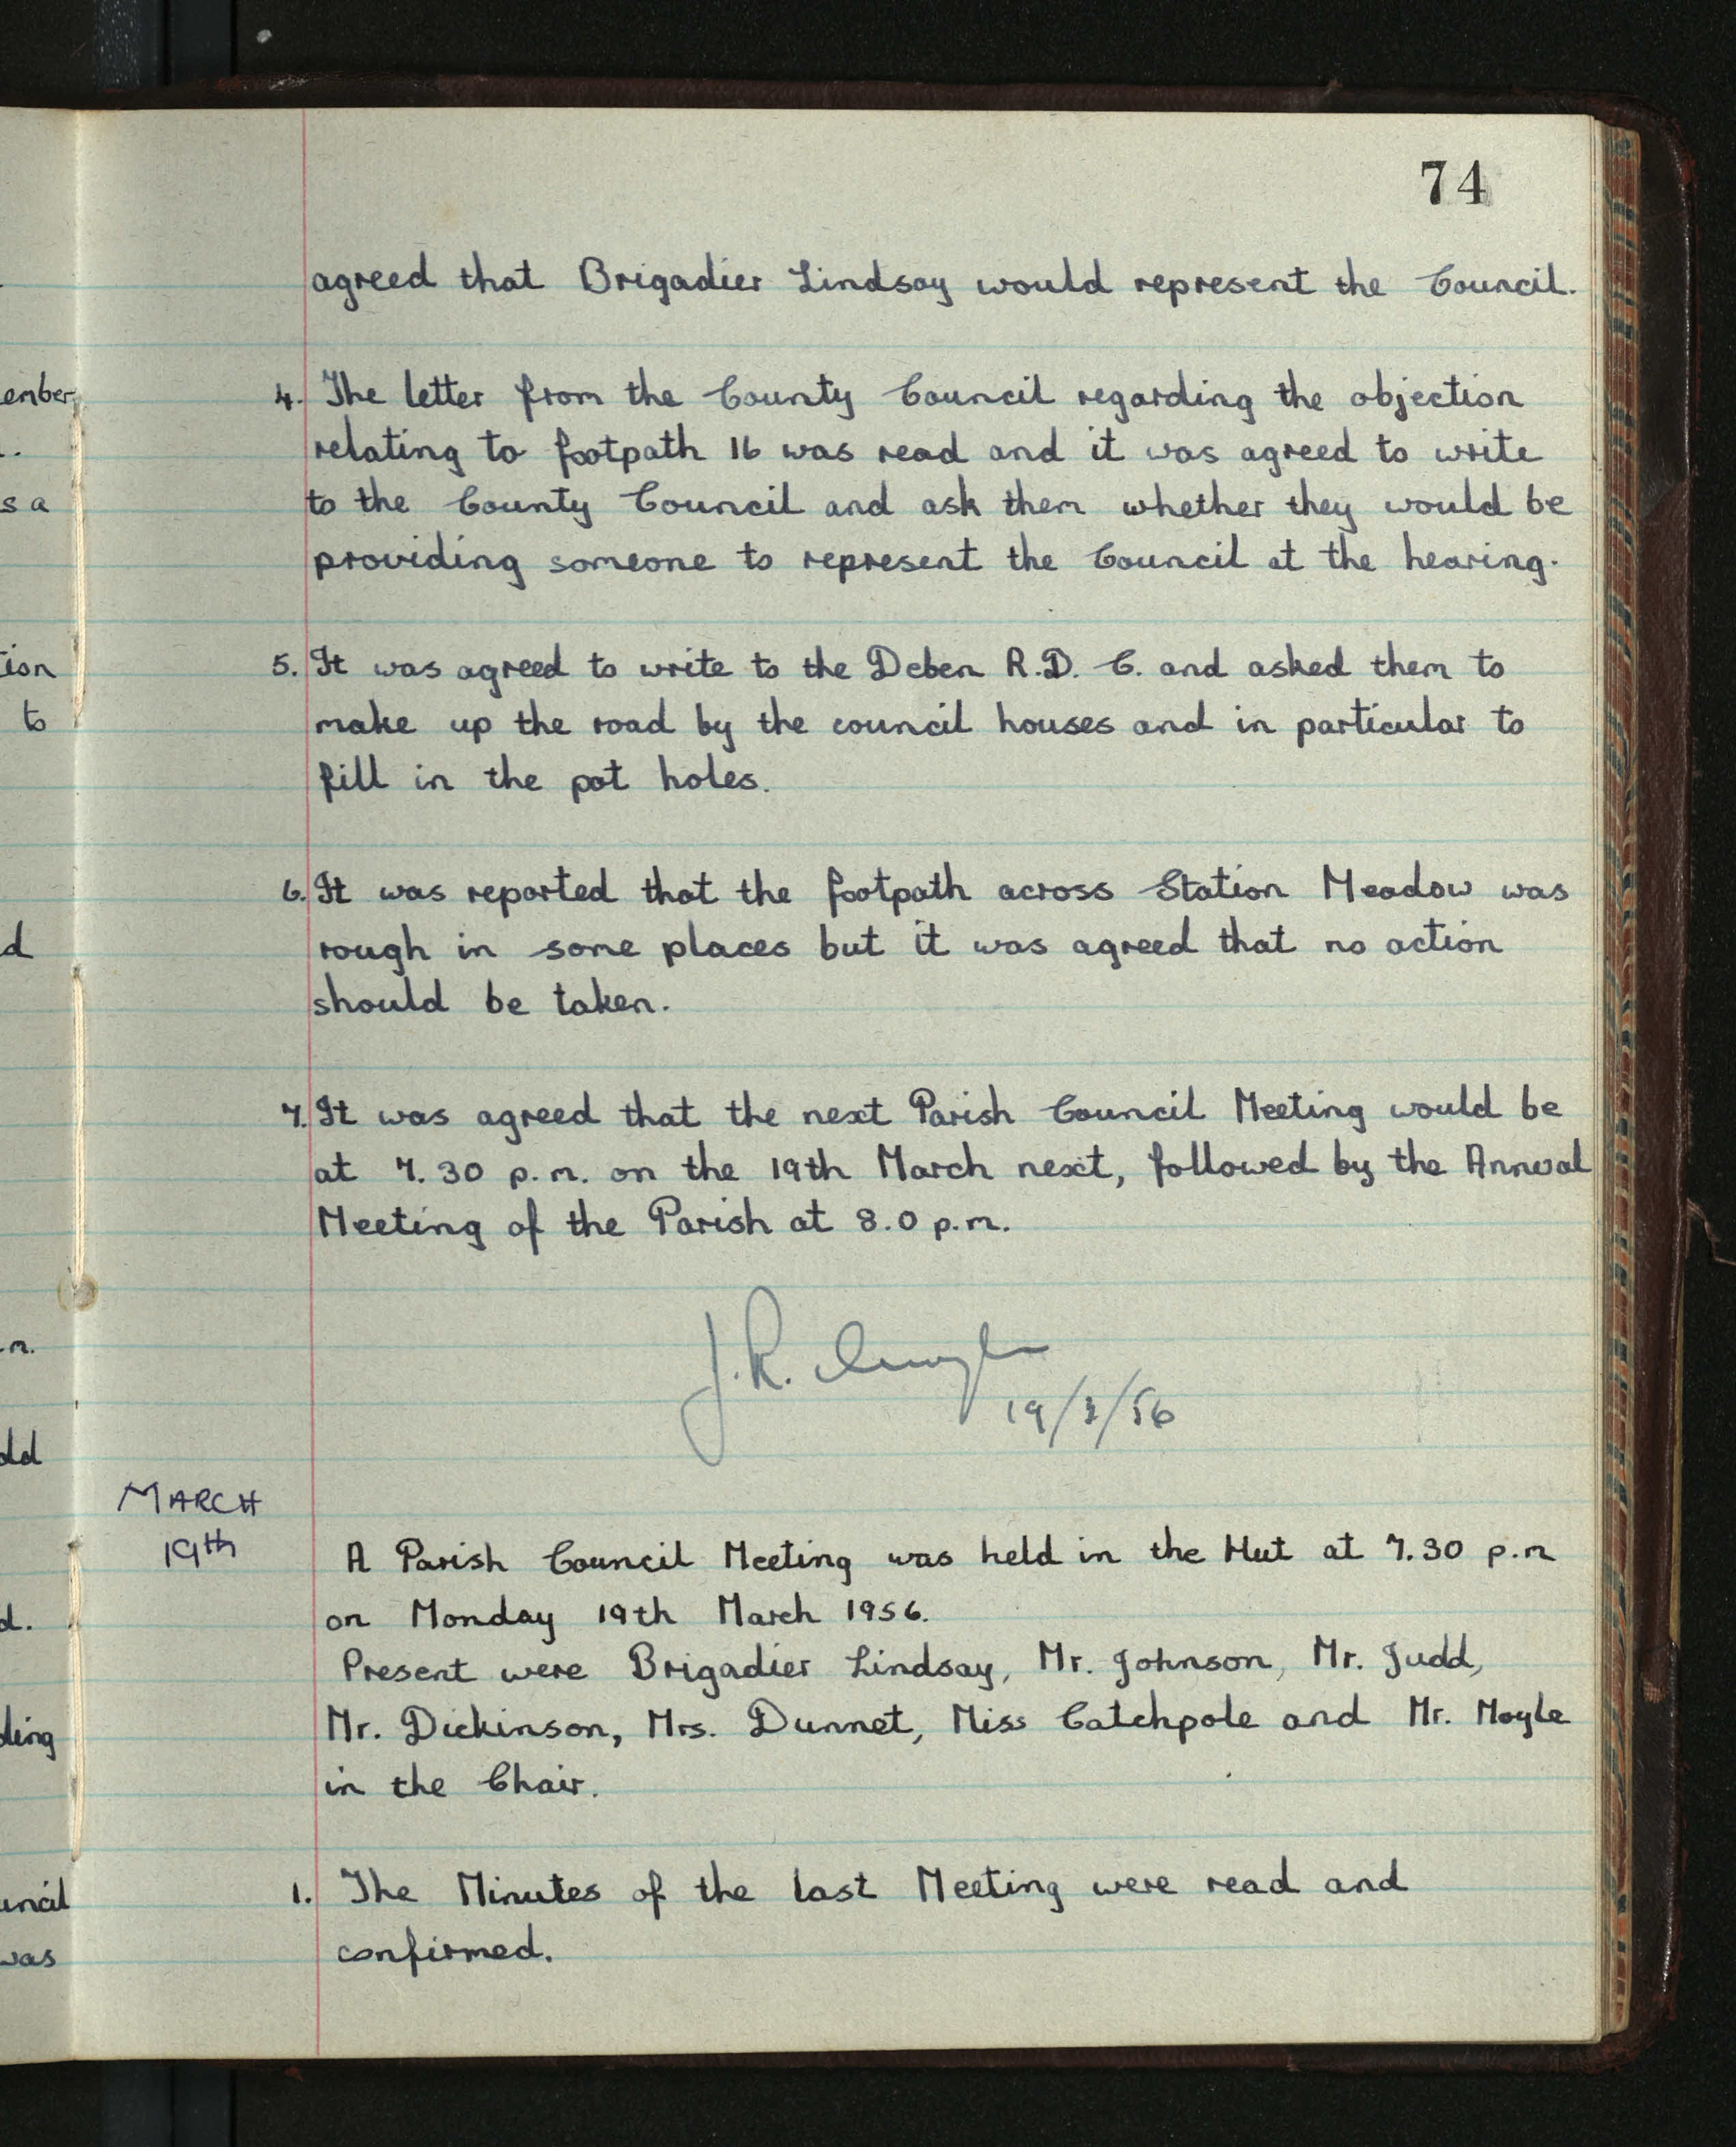 74
agreed that Brigadier Lindsay would represent the Council.
4. The letter from the County Council regarding the objection
relating to footpath 16 was read and it was agreed to write
to the County Council and ask them whether they would be
providing someone to represent the Council at the hearing.
5. It was agreed to write to the Deben R.D.C. and asked them to
make up the road by the council houses and in particular to
fill in the pot holes.
6. It was reported that the footpath across Station Meadow was
rough in some places but it was agreed that no action
should be taken.
7. It was agreed that the next Parish Council Meeting would be
at 7.30 p.m. on the 19th March next, followed by the Annual
Meeting of the Parish at 8.0 p.m.
J.R.
19/3/56
MARCH
19th
A Parish Council Meeting was held in the Hut at 7.30 p.m
on Monday 19th March 1956.
Present were Brigadier Lindsay, Mr. Johnson, Mr. Judd,
Mr. Dickinson, Mrs. Dunnet, Miss Catchpole and Mr. Moyle
in the Chair.
1. The Minutes of the last Meeting were read and
confirmed.